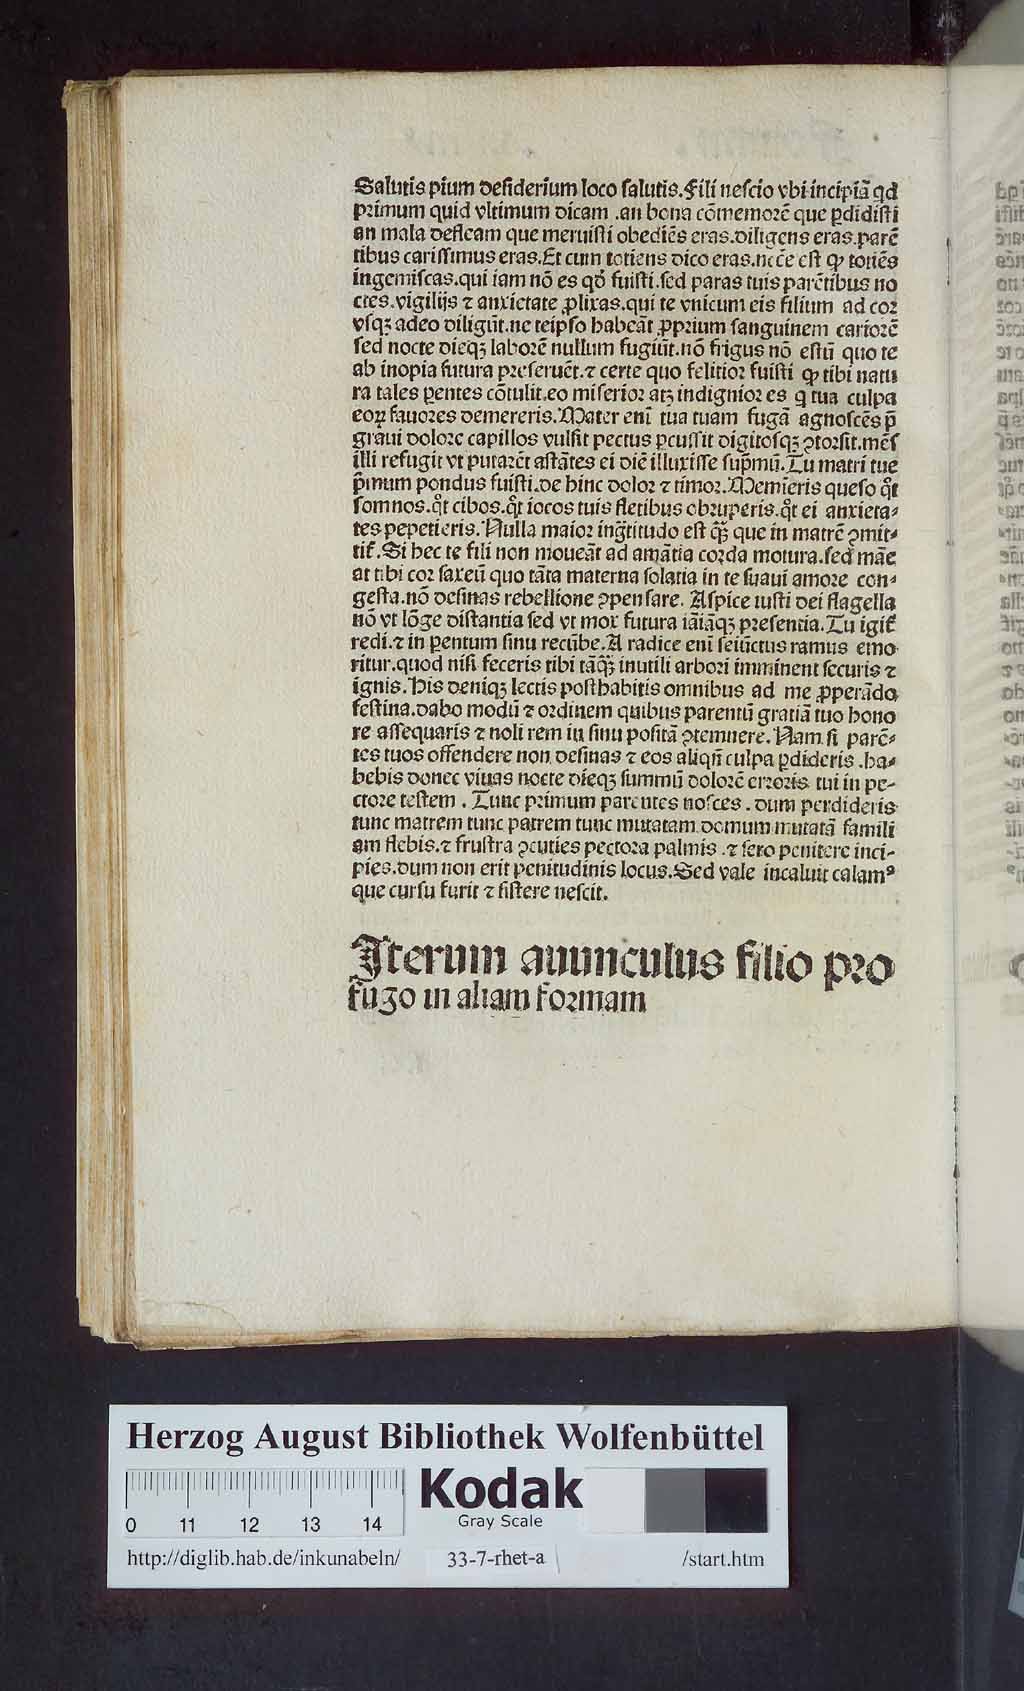 Salutis pium desiderium loco salutis. Fili nescio vbi incipiā qd
primum quid vltimum dicam .an bona cōmemorē que ꝑdidisti
an mala defleam que meruisti obediēs eras. diligens eras. parē
tibus carissimus eras. Et cum totiens dico eras. necē est qꝫ totiēs
ingemiscas. qui iam nō es qd̕ fuisti. sed paras tuis parētibus no
ctes. vigilijs ⁊ anxietate ꝓlixas. qui te vnicum eis filium ad cor
vsqꝫ adeo diligūt. ne teipso habeāt ꝓprium sanguinem cariorē
sed nocte dieqꝫ laborē nullum fugiūt. nō frigus nō estū quo te
ab inopia futura preseruēt. ⁊ certe quo felitior fuisti qꝫ tibi natu
ra tales ꝑentes cōtulit. eo miserior atqꝫ indignior es q̄ tua culpa
eoꝝ fauores demereris. Mater eni̅ tua tuam fugā agnoscēs p̄
graui dolore capillos vulsit pectus ꝑcussit digitosqꝫ ꝯtorsit. mēs
illi refugit vt putarēt astātes ei diē illuxisse sup̄mū. Tu matri tue
p̄mum pondus fuisti. de hinc dolor ⁊ timor. Memīeris queso q̄t
somnos. q̄t cibos. q̄t iocos tuis fletibus obruperis. q̄t ei anxieta⸗
tes pepetieris. Nulla maior ingr̄titudo est qꝫ̄ que in matrē ꝯmit⸗
tit̕. Si hec te fili non moueāt ad amātia corda motura. sed māe
at tibi cor saxeū quo tāta materna solatia in te suaui amore con⸗
gesta. nō desinas rebellione ꝯpensare. Aspice iusti dei flagella
nō vt lōge distantia sed vt mox futura iāiāqꝫ presentia. Tu igit̕
redi. ⁊ in ꝑentum sinu recūbe. A radice eni̅ seiūctus ramus emo
ritur. quod nisi feceris tibi tāqꝫ̄ inutili arbori imminent securis ⁊
ignis. His deniqꝫ lectis posthabitis omnibus ad me ꝓperādo
festina. dabo modū ⁊ ordinem quibus parentū gratiā tuo hono
re assequaris ⁊ noli rem in sinu positā ꝯtemnere. Nam si parē⸗
tes tuos offendere non desinas ⁊ eos aliqn̄ culpa ꝑdideris .ha⸗
bebis donec viuas nocte dieqꝫ summū dolorē erroris tui in pe⸗
ctore testem . Tunc primum parentes nosces . dum perdideris
tunc matrem tunc patrem tunc mutatam domum mutatā famili
am flebis. ⁊ frustra ꝯcuties pectora palmis .⁊ sero penitere inci⸗
pies. dum non erit penitudinis locus. Sed vale incaluit calamꝰ
que cursu furit ⁊ sistere nescit.
Iterum auunculus filio pro
fugo in aliam formam
Herzog August Bibliothek Wolfenbüttel
Kodak
Gray Scale
0 11 12 13 14
http://diglib.hab.de/inkunabeln/ 33-7-rhet-a /start.htm